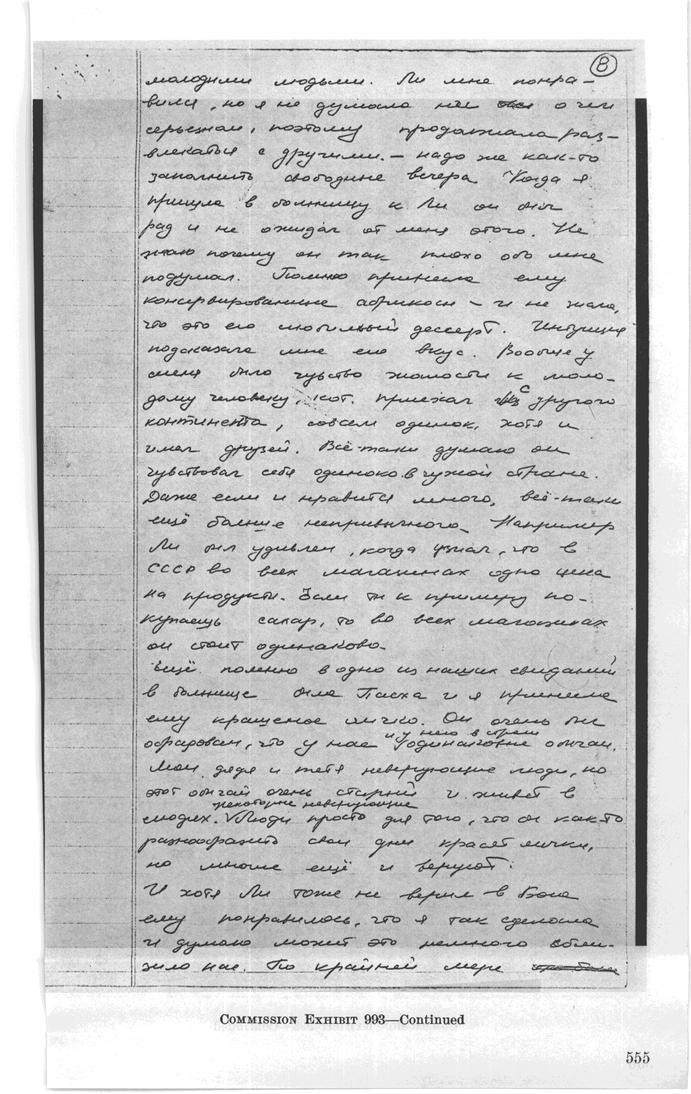 8
молодыми людьми. Ли мне понра-
вился, но я не думала о чем
серьезном, поэтому продолжала раз-
влекаться с другими. – надо же как-то
заполнить свободные вечера Когда я
пришла в больницу к Ли он был
рад и не ожидал от меня этого. Не
знаю почему он так плохо обо мне
подумал. Помню принесла ему
консервированные абрикосы – и не знала,
что это его любимый дессерт. Интуиция
подсказала мне его вкус. Вообще у
меня было чувство жалости к моло-
дому человеку, кот. приехал с другого
континента, совсем одинок, хотя и
имел друзей. Всё-таки думаю он
чувствовал себя одиноко в чужой стране.
Даже если и нравится много, всё-таки
ещё больше непривычного. Например
Ли был удивлен, когда узнал, что в
СССР во всех магазинах одна цена
на продукты. Если ты к примеру по-
купаешь сахар, то во всех магазинах
он стоит одинаково.
Ещё помню в одно из наших свиданий
в больнице была Пасха и я принесла
ему крашеное яичко. Он очень был
и у него в стране
обрадован, что у нас одинаковые обычаи.
Мои дядя и тетя неверующие люди, но
этот обычай очень старый и живёт в
некоторые неверующие
людях. Люди просто для того, что бы как-то
разнообразить свои дни красят яички,
но многие ещё и веруют.
И хотя Ли тоже не верил в Бога
ему понравилось, что я так сделала
и думаю может это немного сбли-
зило нас. По крайней мере
COMMISSION EXHIBIT 993—Continued
555